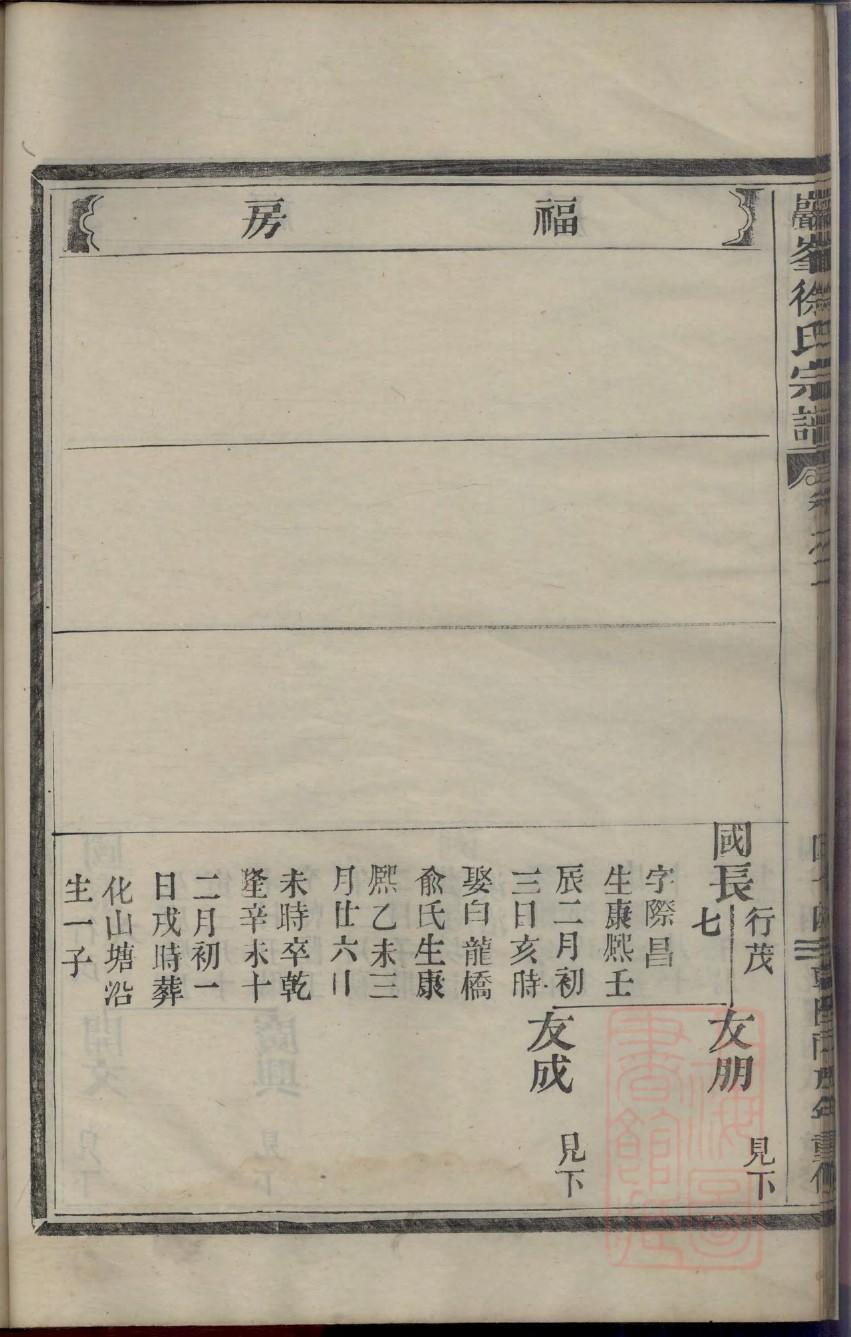 巖峯徐氏宗譜
福房
國長
行茂
七
字際昌
生康熙壬
辰二月初
三日亥時
娶白龍橋
兪氏生康
熙乙未三
月廿六日
未時卒乾
隆辛未十
二月初一
日戌時葬
化山塘沿
生一子
友朋
見下
友成
見下